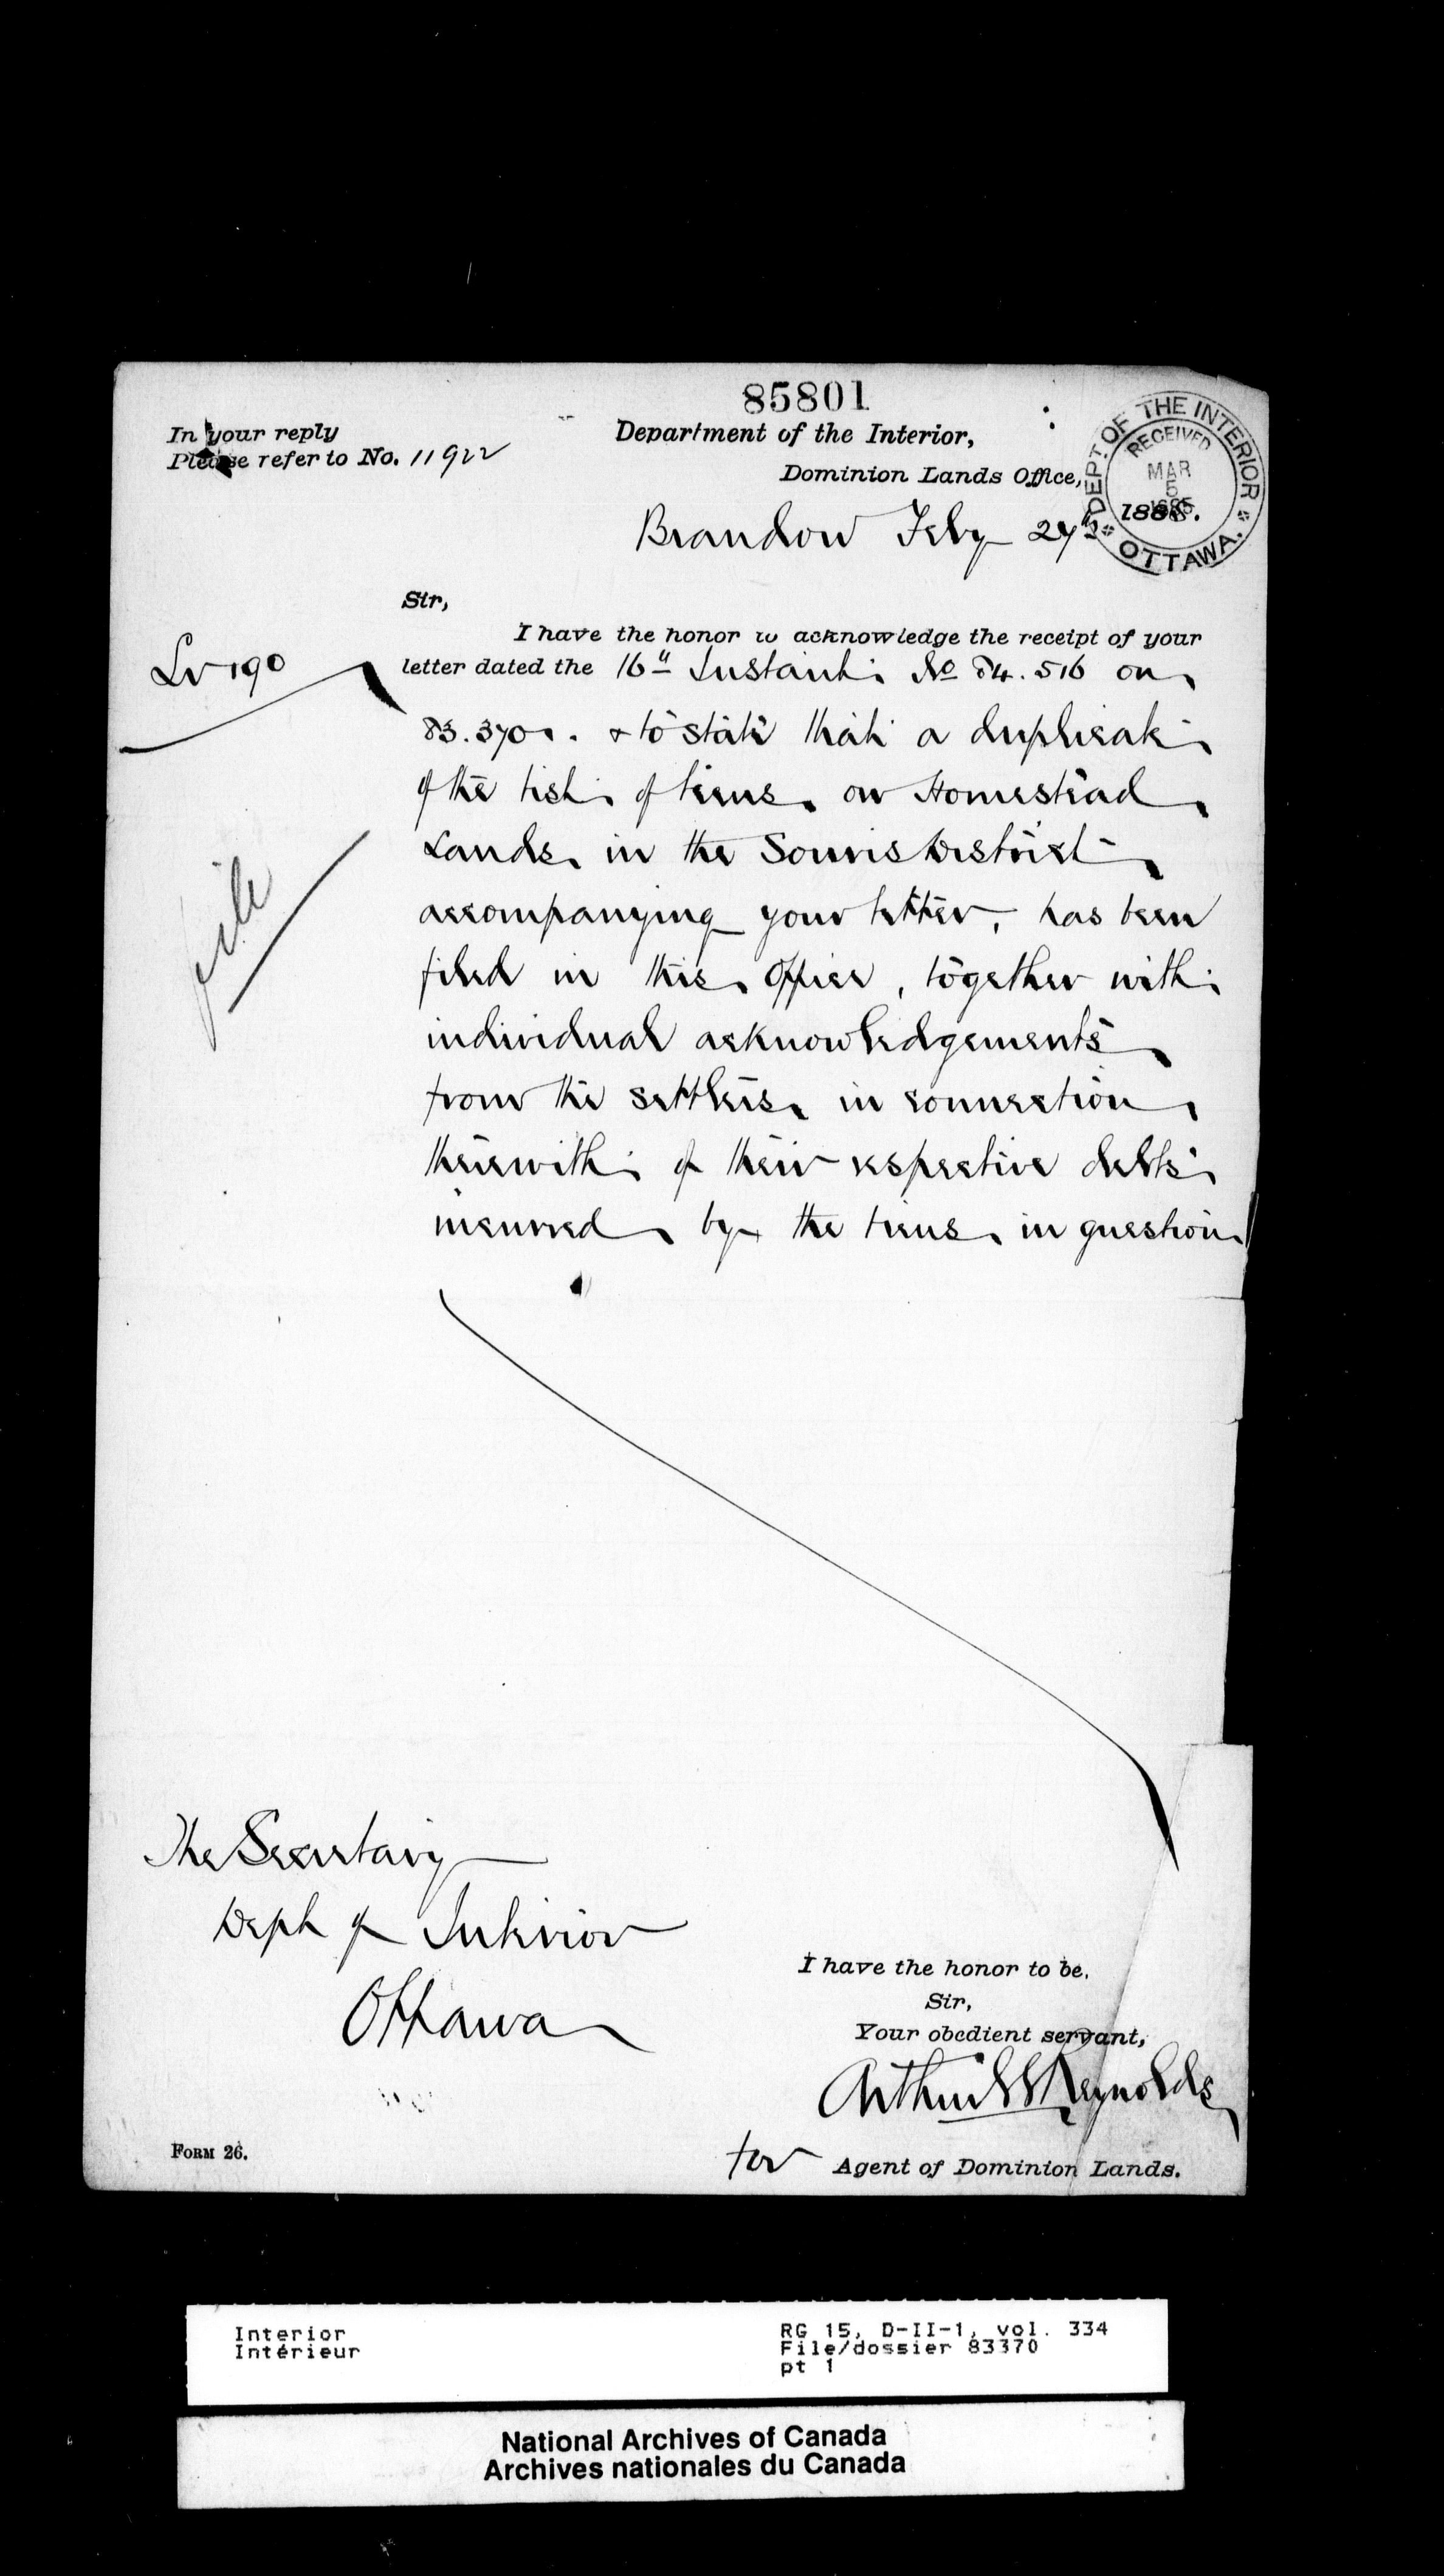 85801
In your reply
Please refer to No. 11922
Department of the Interior,
Dominion Lands Office,
Brandon Feby 27th 188
DEPT. OF THE INTERIOR
RECEIVED
MAR
5
1885
OTTAWA.
Sir,
I have the honor to acknowledge the receipt of your
letter dated the 16th Instant No 84.516 on
83.370. & to state that a duplicate
of the list of liens on Homestead
Lands in the Souris District
accompanying your letter, has been
filed in this Office, together with
individual acknowledgements
from the settlers in connection
therewith of their respective debts
incurred by the liens in question
file
The Secretary
Dept of Interior
Ottawa
I have the honor to be,
Sir,
Your obedient servant,
Reynolds
for Agent of Dominion Lands.
FORM 26.
Interior
Intérieur
RG 15, D-II-1, vol. 334
File/dossier 83370
pt 1
National Archives of Canada
Archives nationales du Canada